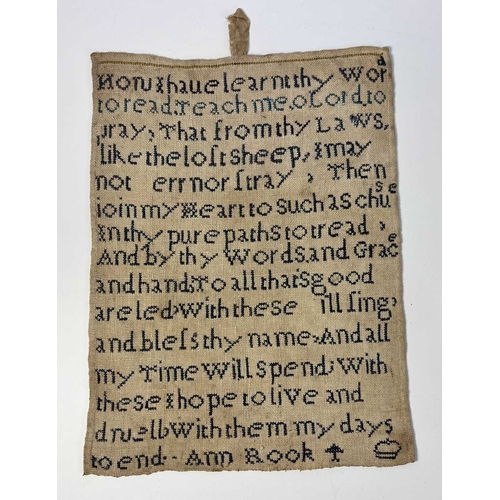 Now I haue learnt thy Word
to read: Teach me, o Lord, to
pray, That from thy Laws,
like the loſt sheep, I may
not err nor ſtray, Then
ioin my Heart to such as chuse
In thy pure paths to tread,
And by thy Words, and Grace
and hand; To all that's good
are led; With these I'll sing,
and bleſs thy name; And all
my Time will spend; With
these I hope to live and
dwell; With them my days
to end:- Ann Rook